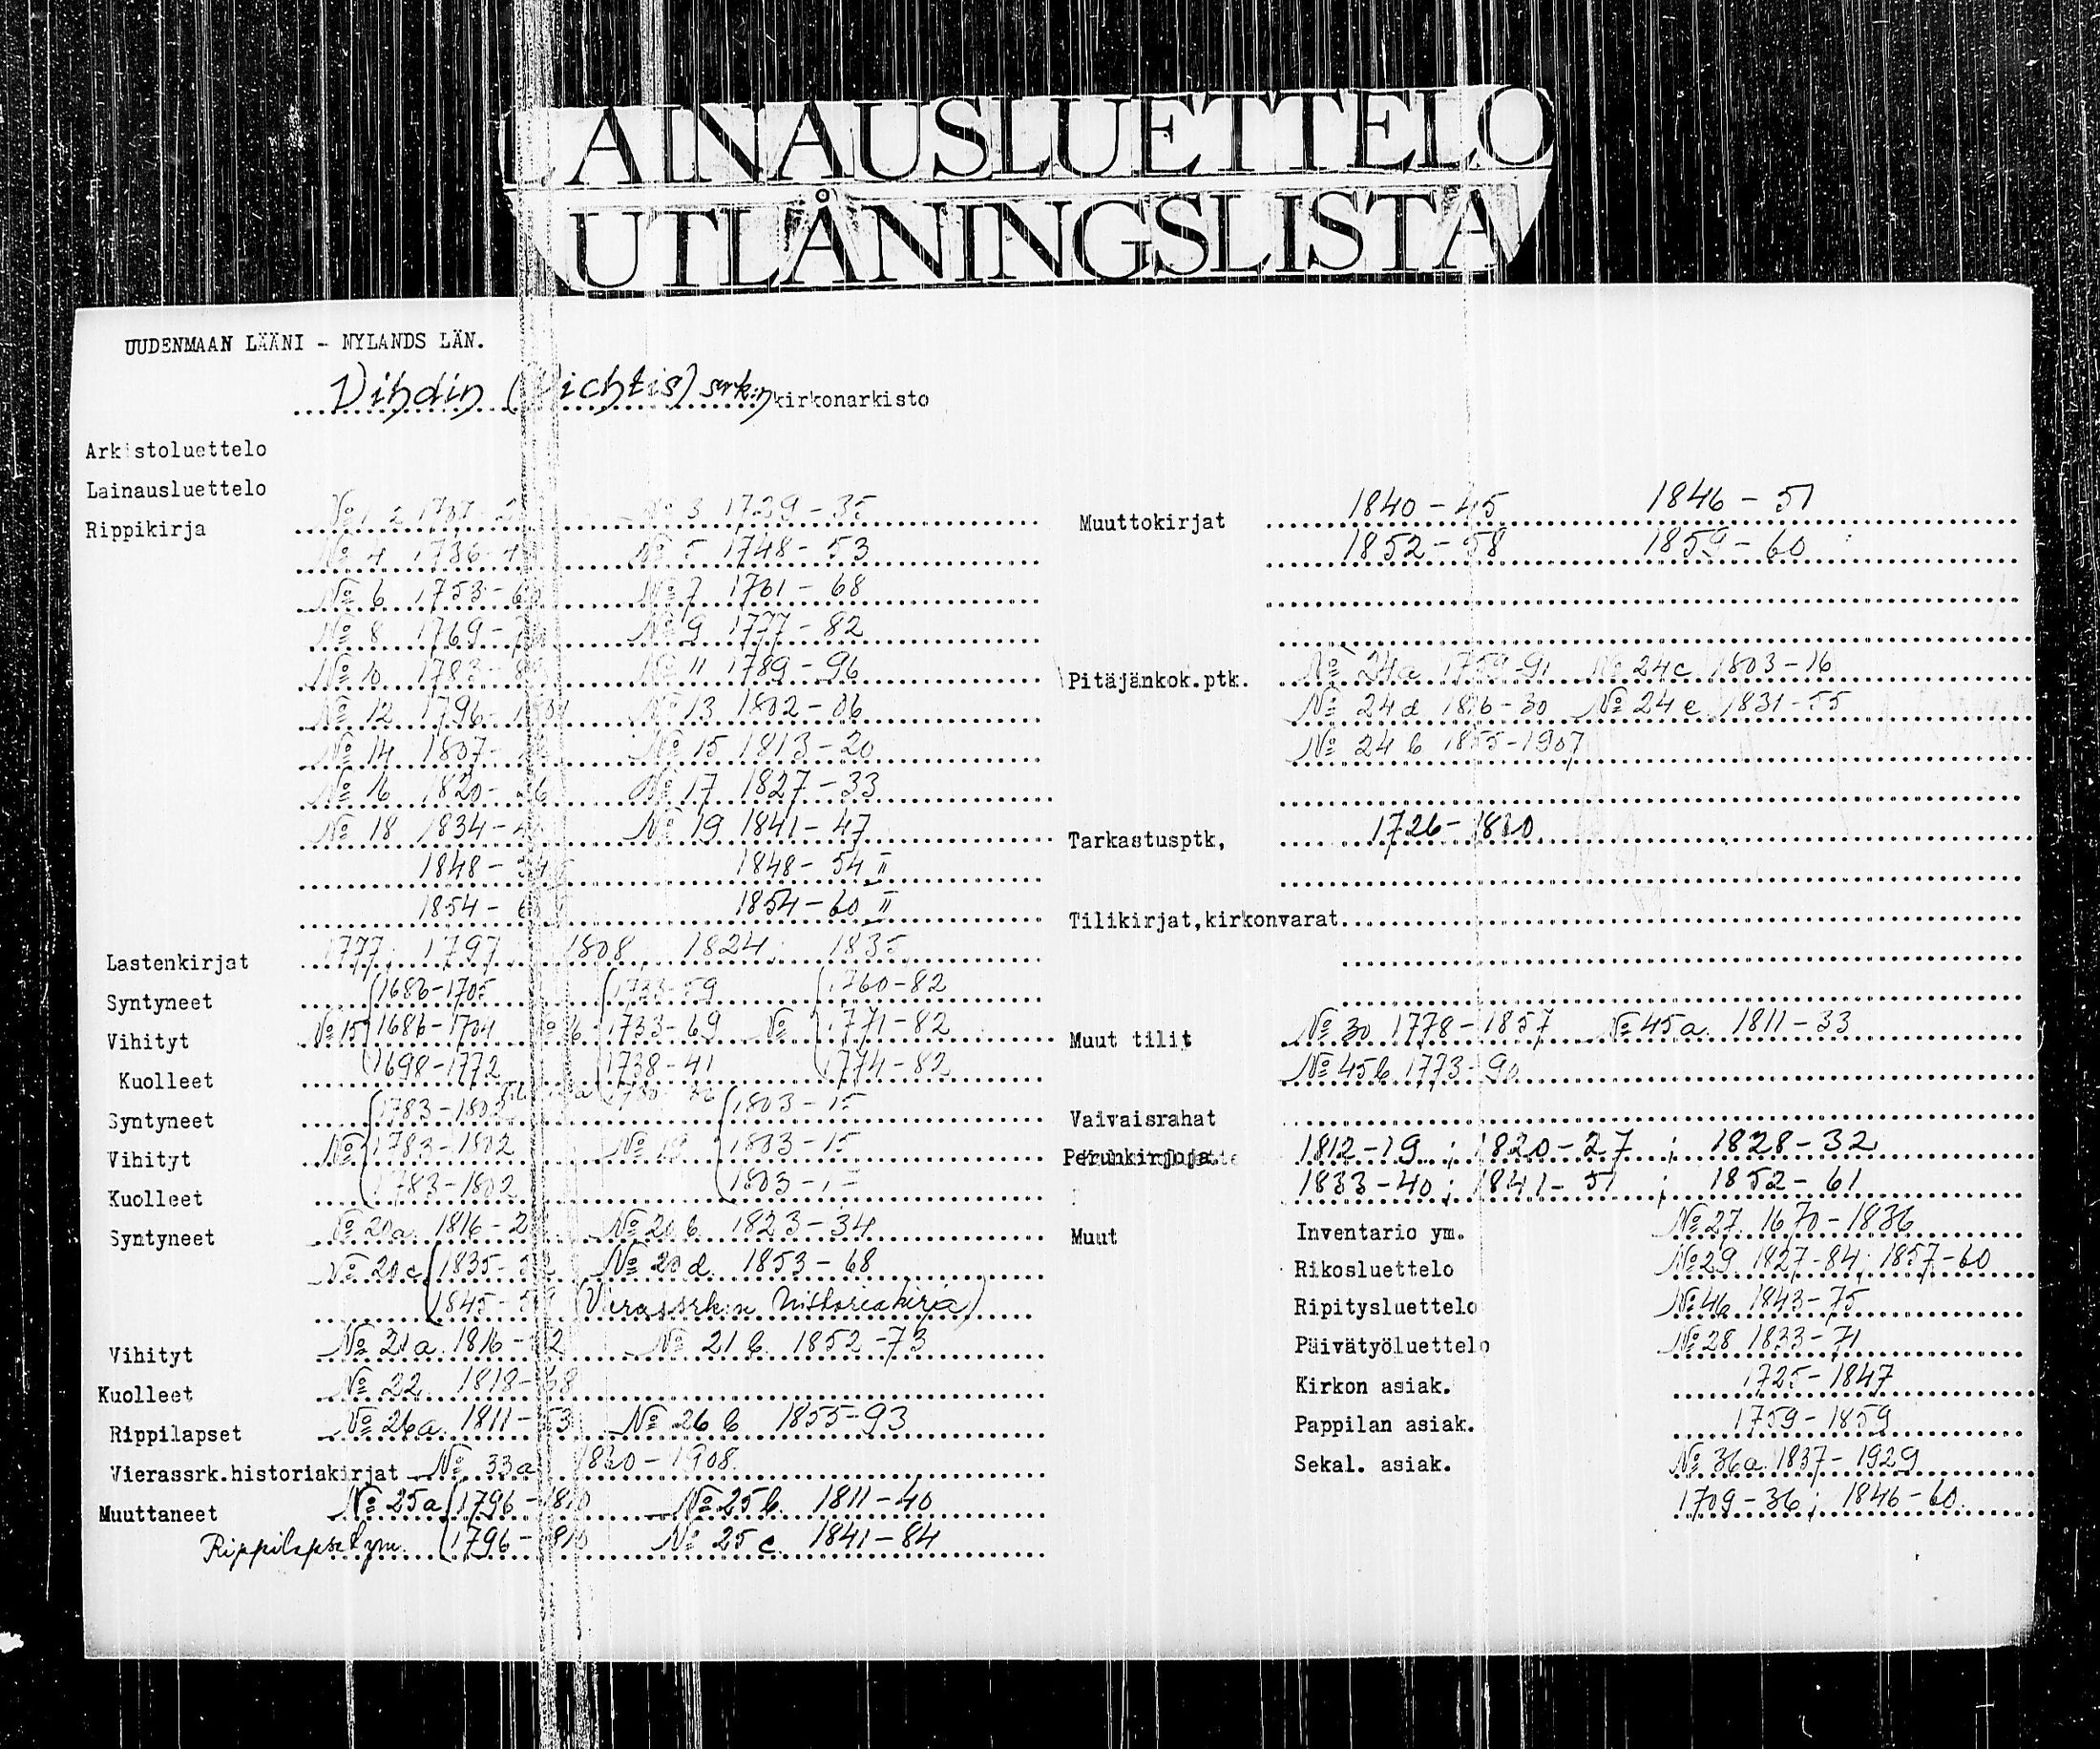 LAINAUSLUETTELO
UTLÅNINGSLISTA
UUDENMAAN LÄÄNI - NYLANDS LÄN.
Vihdin (Vichtis) srk:n kirkonarkisto
Arkistoluettelo
Lainausluettelo
Rippikirja № 3 1729-35
№ 4 1736- № 5 1748-53
№ 6 1753- № 7 1761-68
№ 8 1769- № 9 1777-82
№ 10 1783- № 11 1789-96
№ 12 1796- № 13 1802-06
№ 14 1807- № 15 1813-20
№ 16 1820-26 № 17 1827-33
№ 18 1834- № 19 1841-47
1848-54 1848-54 II
1854- 1854-60 II
Lastenkirjat 1777; 1797 1808 1824; 1835
Syntyneet 1686-1705 1733-59 1760-82
Vihityt № 15 1686-1704 1733-69 № 1771-82
Kuolleet 1698-1772 1738-41 1774-82
Syntyneet 1783-1802 1803-15
Vihityt № 1783-1802 № 1803-15
Kuolleet 1783-1802 1803-
Syntyneet № 20a. 1816- № 20 b. 1823-34
№ 20c 1835- № 20 d. 1853-68
1845- (Vierassrk:n historiakirja)
Vihityt № 21a. 1816- № 21 b. 1852-73
Kuolleet № 22. 1818-68
Rippilapset № 26a. 1811-53 № 26 b 1855-93
Vierassrk.historiakirjat № 33a 1860-1908.
Muuttaneet № 25a 1796-1810 № 25 b. 1811-40
Rippilapset ym. 1796-1810 № 25 c. 1841-84
Muuttokirjat 1840-45 1846-51
1852-58 1859-60
Pitäjänkok.ptk. № 24a 1759-91 № 24c 1803-16
№ 24d 1816-30 № 24e 1831-55
№ 24 b 1855-1907
Tarkastusptk, 1726-1810
Tilikirjat,kirkonvarat
Muut tilit № 30 1778-1857 № 45a. 1811-33
№ 45b 1773-90
Vaivaisrahat
Perunkirjoja 1812-19; 1820-27; 1828-32
1833-40; 1841-51; 1852-61
Muut Inventario ym. № 27. 1670-1836
Rikosluettelo № 29. 1827-84; 1857-60
Ripitysluettelo № 46 1843-75
Päivätyöluettelo № 28 1833-71
Kirkon asiak. 1725-1847
Pappilan asiak. 1759-1859
Sekal. asiak. № 36a. 1837-1929
1709-36; 1846-60.